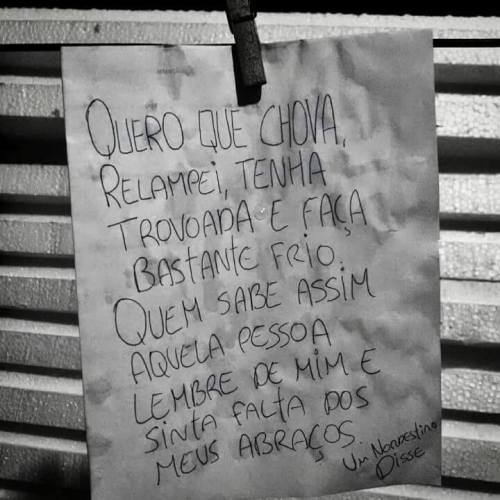 QUERO QUE CHOVA,
RELAMPEI, TENHA
TROVOADA E FAÇA
BASTANTE FRIO.
QUEM SABE ASSIM
AQUELA PESSOA
LEMBRE DE MIM E
SINTA FALTA DOS
MEUS ABRAÇOS.
UM NORDESTINO
DISSE